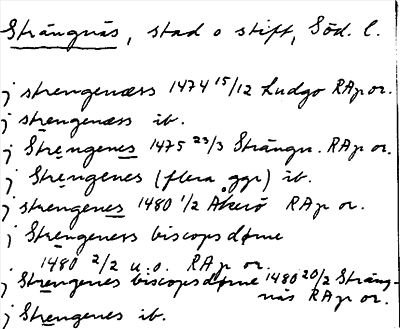 Strängnäs, stad o stift, Söd. l.
j strengenæss 1474 15/12 Ludgo RAp or.
j strengenæss ib.
j Strengenes 1475 23/3 Strängn. RAp or.
j Strengenes (flera ggr) ib.
j strengenes 1480 1/2 Åkerö RAp or.
j Strengeness biscopsdøme
1480 2/2 u.o. RAp or.
j Strengenes biscopsdøme 1480 20/2 Sträng-
näs RAp or.
j Strengenes ib.